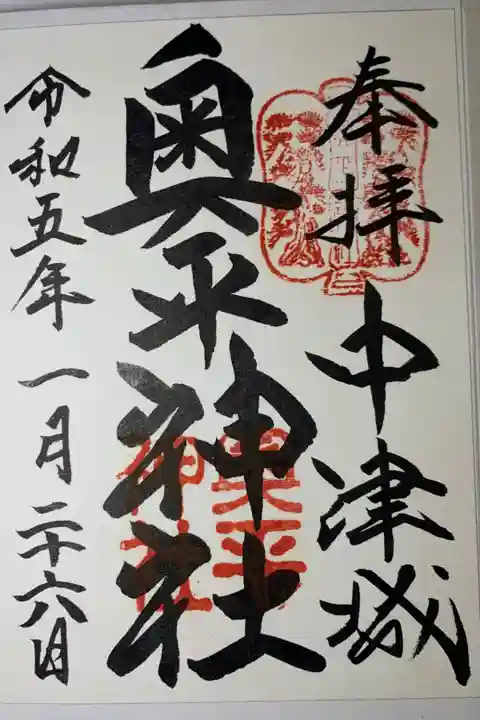 奉拝 中津城
奥平神社
令和五年 一月 二十六日
奥平
神社